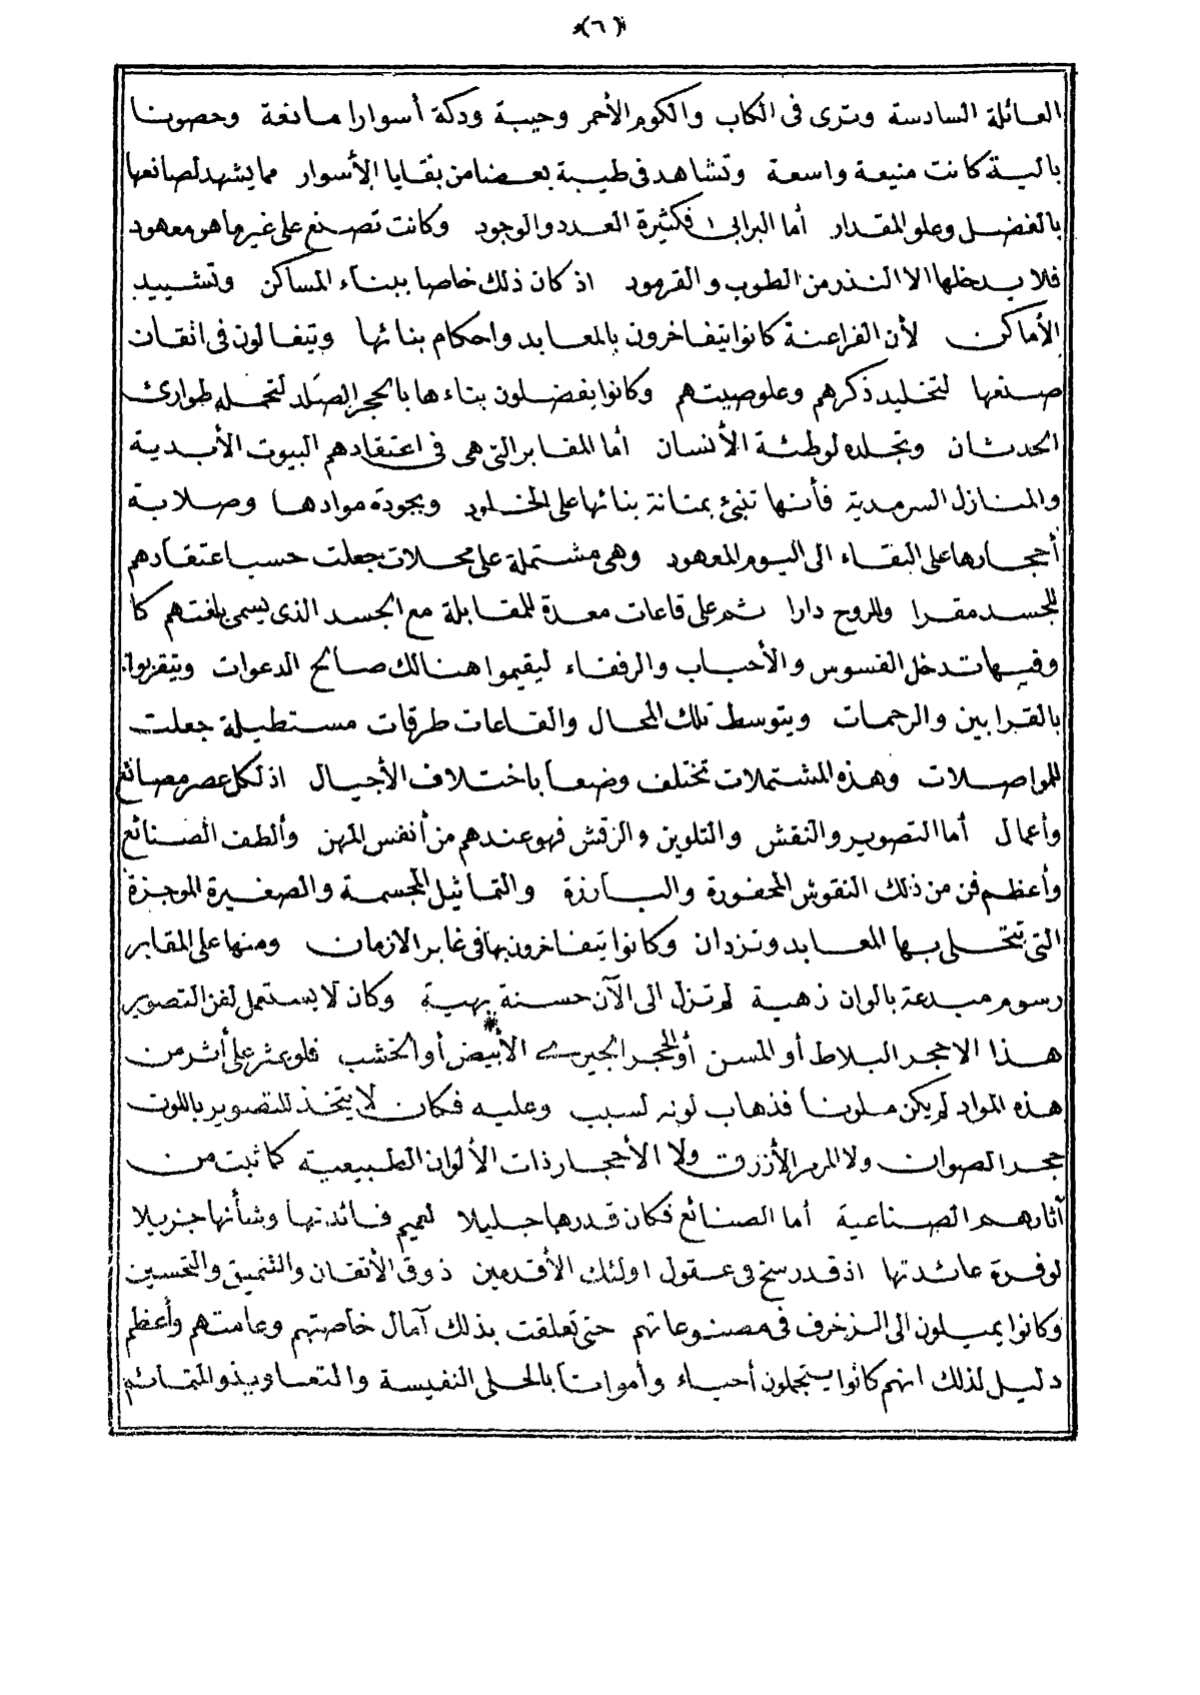 (٦)
العائلة السادسة وترى فى الكاب والكوم الأحمر وحيبة ودكة أسوارا مانعة وحصونا
بالية كانت منيعة واسعة وتشاهد فى طيبة بعضا من بقايا الأسوار مما يشهد لصانعها
بالفضل وعلو المقدار أما البرابى فكثيرة العدد والوجود وكانت تصنع على غير ما هو معهود
فلا يدخلها الا النذر من الطوب والقرمود اذ كان ذلك خاصا ببناء المساكن وتشييد
الأماكن لأن الفراعنة كانوا يتفاخرون بالمعابد واحكام بنائها ويتغالون فى اتقان
صنعها لتخليد ذكرهم وعلو صيتهم وكانوا يفضلون بناءها بالحجر الصلد لتحمله طوارئ
الحدثان وتجلده لوطئة الأنسان أما المقابر التى هى فى اعتقادهم البيوت الأبدية
والمنازل السرمدية فأنها تنبئ بمتانة بنائها على الخلود وبجودة موادها وصلابة
أحجارها على البقاء الى اليوم المعهود وهى مشتملة على محلات جعلت حسب اعتقادهم
للجسد مقرا وللروح دارا ثم على قاعات معدة للمقابلة مع الجسد الذى يسمى بلغتهم كا
وفيها تدخل القسوس والأحباب والرفقاء ليقيموا هنالك صالح الدعوات ويتقربوا
بالقرابين والرحمات ويتوسط تلك المحال والقاعات طرقات مستطيلة جعلت
للمواصلات وهذه المشتملات تختلف وضعا باختلاف الأجيال اذ لكل عصر مصانع
وأعمال أما التصوير والنقش والتلوين والزقش فهو عندهم من أنفس المهن وألطف الصنائع
وأعظم فن من ذلك النقوش المحفورة والبارزة والتماثيل المجسمة والصغيرة الموجزة
التى تتحلى بها المعابد وتزدان وكانوا يتفاخرون بها فى غابر الازمان ومنها على المقابر
رسوم مبدعة بالوان زهية لم تزل الى الآن حسنة بهية وكان لا يستعمل لفن التصوير
هذا الا حجر البلاط أو المسن أو الحجر الجيرى الأبيض أو الخشب فلو عثر على أثر من
هذه المواد لم يكن ملونا فذهاب لونه لسبب وعليه فكان لا يتخذ للتصوير باللون
حجر الصوان ولا المرمر الأزرق ولا الأحجار ذات الألوان الطبيعية كما ثبت من
آثارهم الصناعية أما الصنائع فكان قدرها جليلا لعميم فائدتها وشأنها جزيلا
لوفرة عائدتها اذ قد رسخ فى عقول اولئك الأقدمين ذوق الأتقان والتنميق والتحسين
وكانوا يميلون الى الزخرف فى مصنوعاتهم حتى تعلقت بذلك آمال خاصتهم وعامتهم وأعظم
دليل لذلك انهم كانوا يتجملون أحياء وأمواتا بالحلى النفيسة والتعاويذ والتمائم